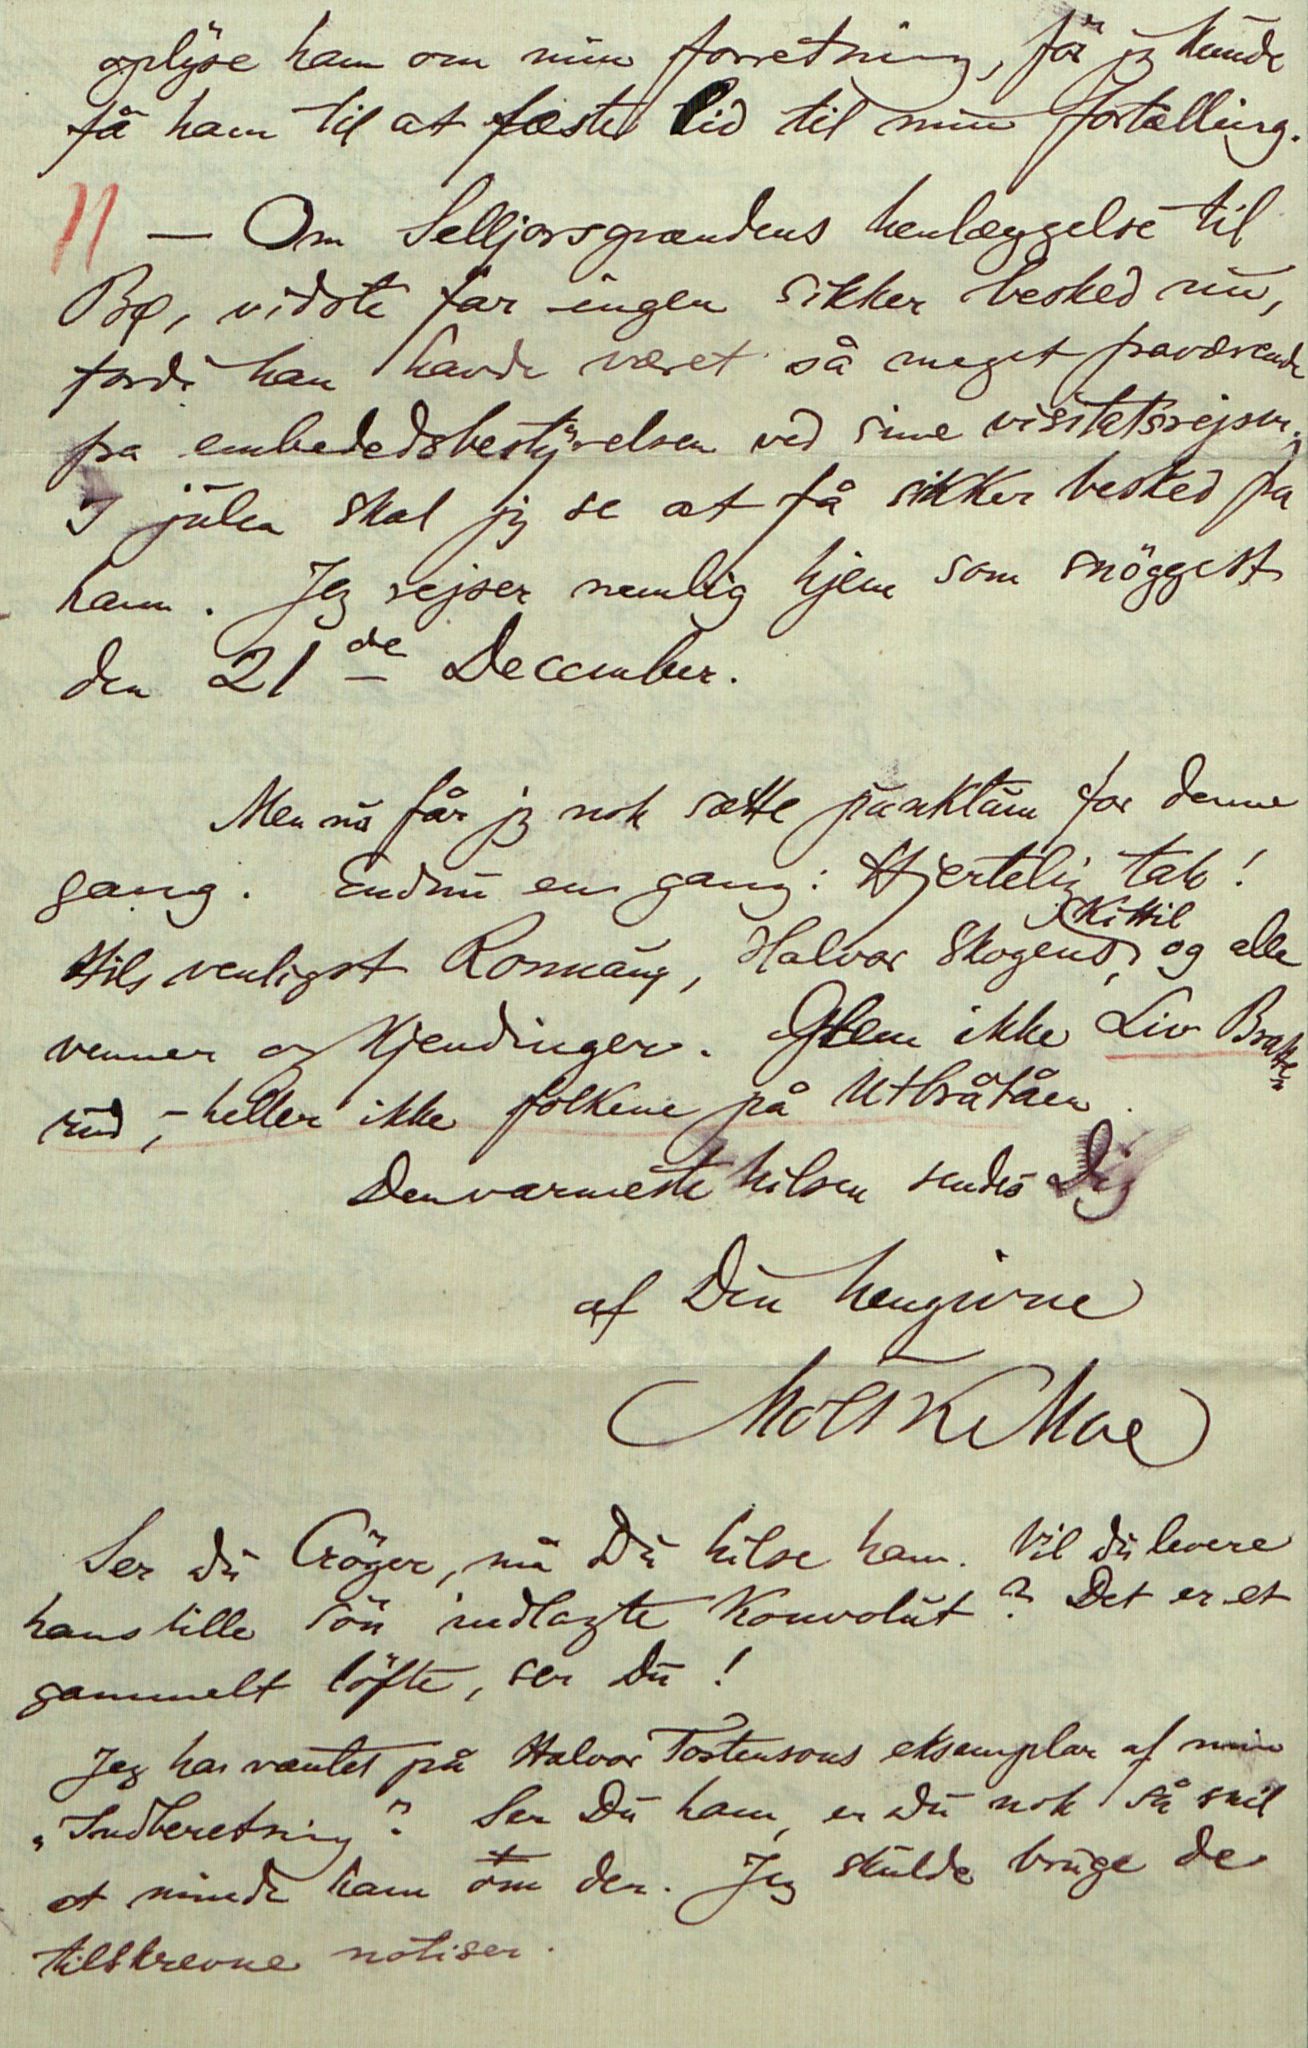 oplyse ham om min forretning, för jeg kunde
få ham til at fæste lid til min fortælling.
— Om Selljorsgrændens henlæggelse til
Bø, vidste far ingen sikker besked nu,
fordi han havde været så meget fraværende
fra embededsbestyrelsen ved sine visitatsrejser.
I julen skal jeg se at få sikker besked fra
ham. Jeg rejser nemlig hjem som snöggest
den 21de December.
Men nu får jeg nok sætte punktum for denne
gang. Endnu en gang: Hjertelig tak!
Kittil
Hils venligst Romnäng, Halvor Skogens, og alle
venner og Kjendinger. Glem ikke Liv Bratte-
rud, – heller ikke folkene på Utbråtåen.
Den varmeste hilsen sendes Dig
af Din hengivne
Moltke Moe
Ser du Cröger, må Du hilse ham. Vil du levere
hans lille sön indlagte Konvolut? Det er et
gammelt löfte, ser Du!
Jeg har væntet på Halvor Tostensons eksemplar af min
„Indberetning”. Ser Du ham, er Du nok så snil
at minde ham om den. Jeg skulde bruge de
tilskrevne notiser.